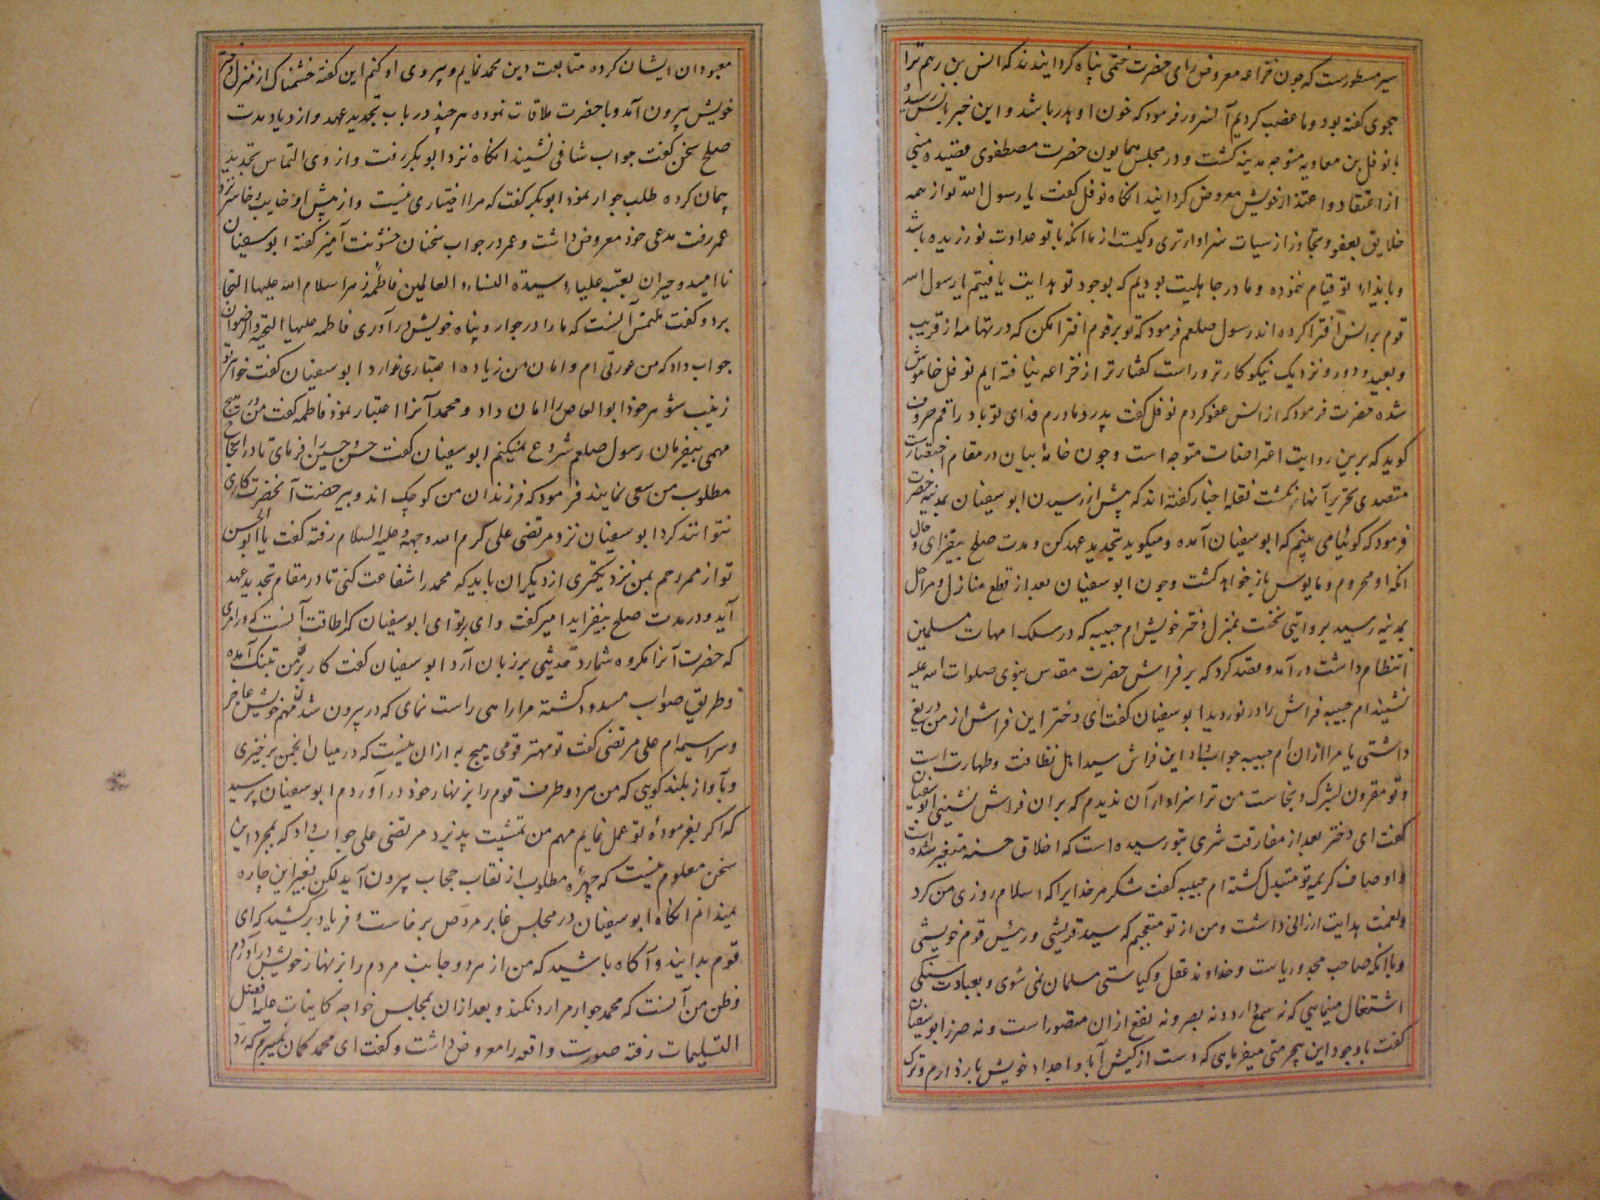 سیر مسطورست که چون خزاعه معروض رای حضرت ختمی پناه کردانیدند که انس بن زهم ترا
هجوی کفته بود و ما غضب کردیم آنسرور فرمود که خون او هدر باشد و این خبر بانس رسید و
با نوفل بن معاویه متوجه مدینه کشت و در مجلس همایون حضرت مصطفوی قصیده مبنی
از اعتقاد و اعتذار خویش معروض کردانید انکاه نوفل کفت یا رسول الله تو از همه
خلایق بعفو و تجاوز از سیات سزاوارتری و کیست از ما انکه با تو عداوت نورزیده باشد
و بایذاء تو قیام ننموده و ما در جاهلیت بودیم که بوجود تو هدایت یافتیم یا رسول الله
قوم بر انس افترا کرده اند رسول صلعم فرمود که تو بر قوم افترا مکن که در تهامه از قریب
و بعید و دور و نزدیک نیکو کارتر و راست کفتارتر از خزاعه نیافته ایم نوفل خاموش
شده حضرت فرمود که از انس عفو کردم نوفل کفت پدر و مادرم فدای تو باد راقم حروف
کوید که برین روایت اعتراضات متوجه است و چون خامهٔ بیان در مقام اختصارست
متصدی تحریر آنها نکشت نقله اخبار کفته اند که پیش از رسیدن ابوسفیان بمدینه حضرت
فرمود که کوئیا می بینم که ابوسفیان آمده و میکوید تجدید عهد کن و مدت صلح بیفزای و حال
انکه او محروم و مایوس باز خواهد کشت و چون ابوسفیان بعد از قطع منازل و مراحل
بمدینه رسید بروایتی نخست بمنزل دختر خویش ام حبیبه که در سلک امهات مسلمین
انتظام داشت درآمد و قصد کرد که بر فراش حضرت مقدس نبوی صلوات الله علیه
نشیند ام حبیبه فراش را در نوردید ابوسفیان کفت ای دختر این فراش از من دریغ
داشتی یا مرا ازان ام حبیبه جواب داد این فراش سید اهل نظافت و طهارت است
و تو مقرون بشرک و نجاست من ترا سزاوار آن ندیدم که بران فراش نشینی ابوسفیان
کفت ای دختر بعد از مفارقت شری بتو رسیده است که اخلاق حسنه متغیر شده است
و اوصاف کریمه تو متبدل کشته ام حبیبه کفت شکر مر خدایرا که اسلام روزی من کرد
و نعمت هدایت ارزانی داشت و من از تو متعجبم که سید قریشی و رئیس قوم خویشی
و باانکه صاحب مجد و ریاست و خداوند عقل و کیاستی مسلمان نمی شوی و بعبادت سنکی
اشتغال مینمایی که نه سمع دارد نه بصر و نه نفع ازان متصور است و نه ضرر ابوسفیان
کفت باوجود این بیحرمتی میفرمایی که دست از کیش آبا و اجداد خویش باز دارم و ترک
معبودان ایشان کرده متابعت دین محمد نمایم و پیروی او کنم این کفته خشمناک از منزل دختر
خویش بیرون آمد و با حضرت ملاقات نموده هر چند در باب تجدید عهد و ازدیاد مدت
صلح سخن کفت جواب شافی نشنید انکاه نزد ابوبکر رفت و از وی التماس تجدید
پیمان کرده طلب جوار نمود ابوبکر کفت که مرا اختیاری نیست و از پیش او خایب و خاسر نزد
عمر رفت مدعی خود معروض داشت و عمر در جواب سخنان خشونت آمیز کفته ابوسفیان
ناامید و حیران بعتبه علیاء سیدة النساء العالمین فاطمه زهرا سلام الله علیها التجا
برد و کفت ملتمس آنست که مارا در جوار و پناه خویش درآوری فاطمه علیها التحیة والرضوان
جواب داد که من عورتی ام و امان من زیاده اعتباری ندارد ابوسفیان کفت خواهر تو
زینب شوهر خود ابوالعاص را امان داد و محمد آنرا اعتبار نمود فاطمه کفت من در هیچ
مهمی بیفرمان رسول صلعم شروع نمیکنم ابوسفیان کفت حسن و حسین را فرمای تا در انجاح
مطلوب من سعی نمایند فرمود که فرزندان من کوچک اند و بیرخصت آنحضرت کاری
نتوانند کرد ابوسفیان نزد مرتضی علی کرم الله وجهه و علیه السلام رفته کفت یا ابوالحسن
تو از ممر رحم بمن نزدیکتری از دیکران باید که محمد را شفاعت کنی تا در مقام تجدید عهد
آید و در مدت صلح بیفزاید امیر کفت وای بر تو ای ابوسفیان کرا طاقت آنست که در امری
که حضرت آنرا مکروه شمارد حدیثی بر زبان آرد ابوسفیان کفت کار بر من تنک آمده
و طریق صواب مسدود کشته مرا راهی راست نمای که در بیرون شد مهم خویش عاجز
و سراسیمه ام علی مرتضی کفت تو مهتر قومی هیچ به ازان نیست که در میان انجمن برخیزی
و بآواز بلند کویی که من هر دو طرف قوم را بزنهار خود درآوردم ابوسفیان پرسید
که اکر بفرمودهٔ تو عمل نمایم مهم من تمشیت پذیرد مرتضی علی جواب داد که بمجرد این
سخن معلوم نیست که چهرهٔ مطلوب از نقاب حجاب بیرون آید لکن بغیر این چاره
نمیدانم انکاه ابوسفیان در مجلس برخاست و فریاد برکشید که ای
قوم بدانید و آکاه باشید که من از هر دو جانب مردم را بزنهار خویش درآوردم
و ظن من آنست که محمد جوار مرا رد نکند و بعد ازان بمجلس خواجه کاینات علیه افضل
التسلیمات رفته صورت واقعه را معروض داشت و کفت ای محمد کمان نمیبرم که رد